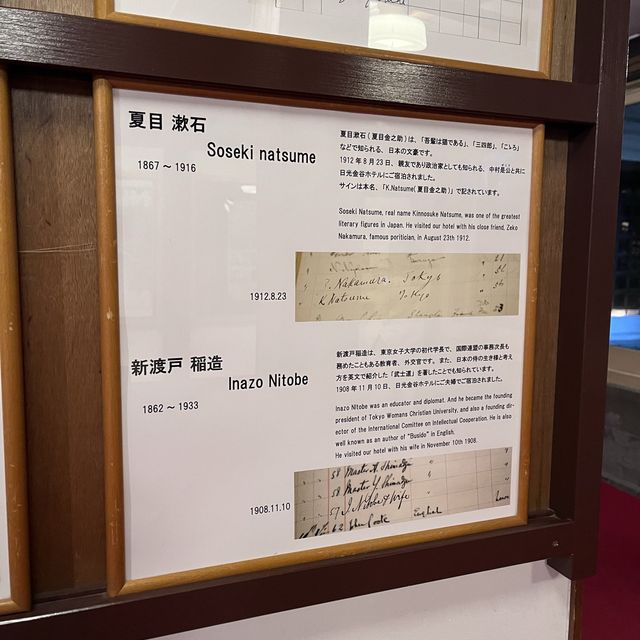 夏目 漱石
Soseki natsume
1867 ～ 1916
夏目漱石(夏目金之助)は、「吾輩は猫である」、「三四郎」、「こころ」
などで知られる、日本の文豪です。
1912年8月23日、親友であり政治家としても知られる、中村是公と共に
日光金谷ホテルにご宿泊されました。
サインは本名、「K.Natsume(夏目金之助)」で記されています。
Soseki Natsume, real name Kinnosuke Natsume, was one of the greatest
literary figures in Japan. He visited our hotel with his close friend, Zeko
Nakamura, famous poritician, in August 23th 1912.
Nakamura. Tokyo
K Natsume Tokyo
1912.8.23
新渡戸 稲造
Inazo Nitobe
1862 ～ 1933
新渡戸稲造は、東京女子大学の初代学長で、国際連盟の事務次長も
務めたこともある教育者、外交官です。また、日本の侍の生き様と考え
方を英文で紹介した「武士道」を著したことでも知られています。
1908年11月10日、日光金谷ホテルにご夫婦でご宿泊されました。
Inazo Nitobe was an educator and diplomat. And he became the founding
president of Tokyo Womans Christian University, and also a founding dir-
ector of the international Comittee on Intellectual Cooperation. He is also
well known as an author of "Busido" in English.
He visited our hotel with his wife in November 10th 1908.
58 Master
58 Master Y
57 I Nitobe & Wife
62 Cook English
1908.11.10